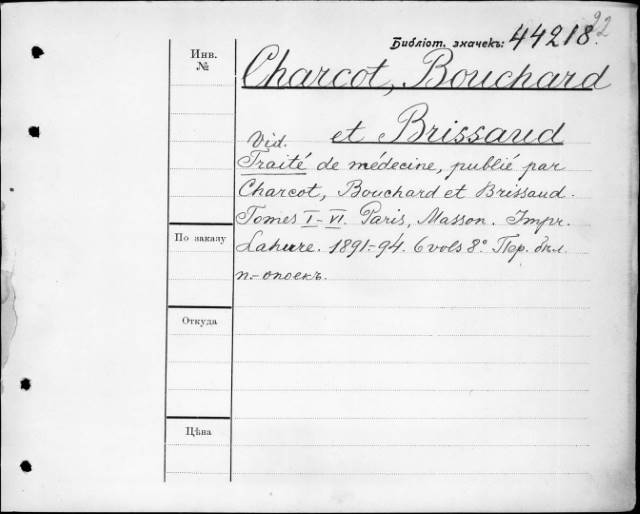 92
Библіот. значекъ: 44218.
Инв.
№
Charcot, Bouchard
et Brissaud
Vid.
Traité de médecine, publié par
Charcot, Bouchard et Brissaud.
Tomes I-VI. Paris, Masson. Impr.
Lahure. 1891-94. 6 vols 8° Пер. бѣл.
п.-опоекъ.
По заказу
Откуда
Цѣна